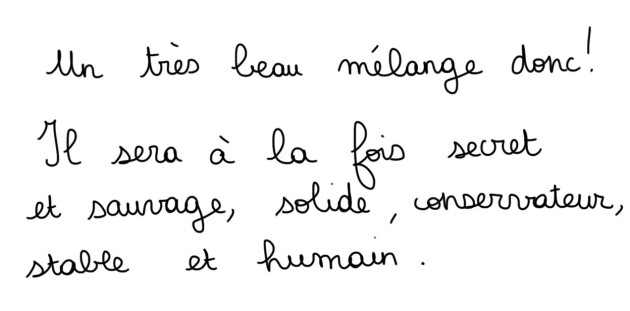 Un très beau mélange donc!
Il sera à la fois secret
et sauvage, solide, conservateur,
stable et humain.